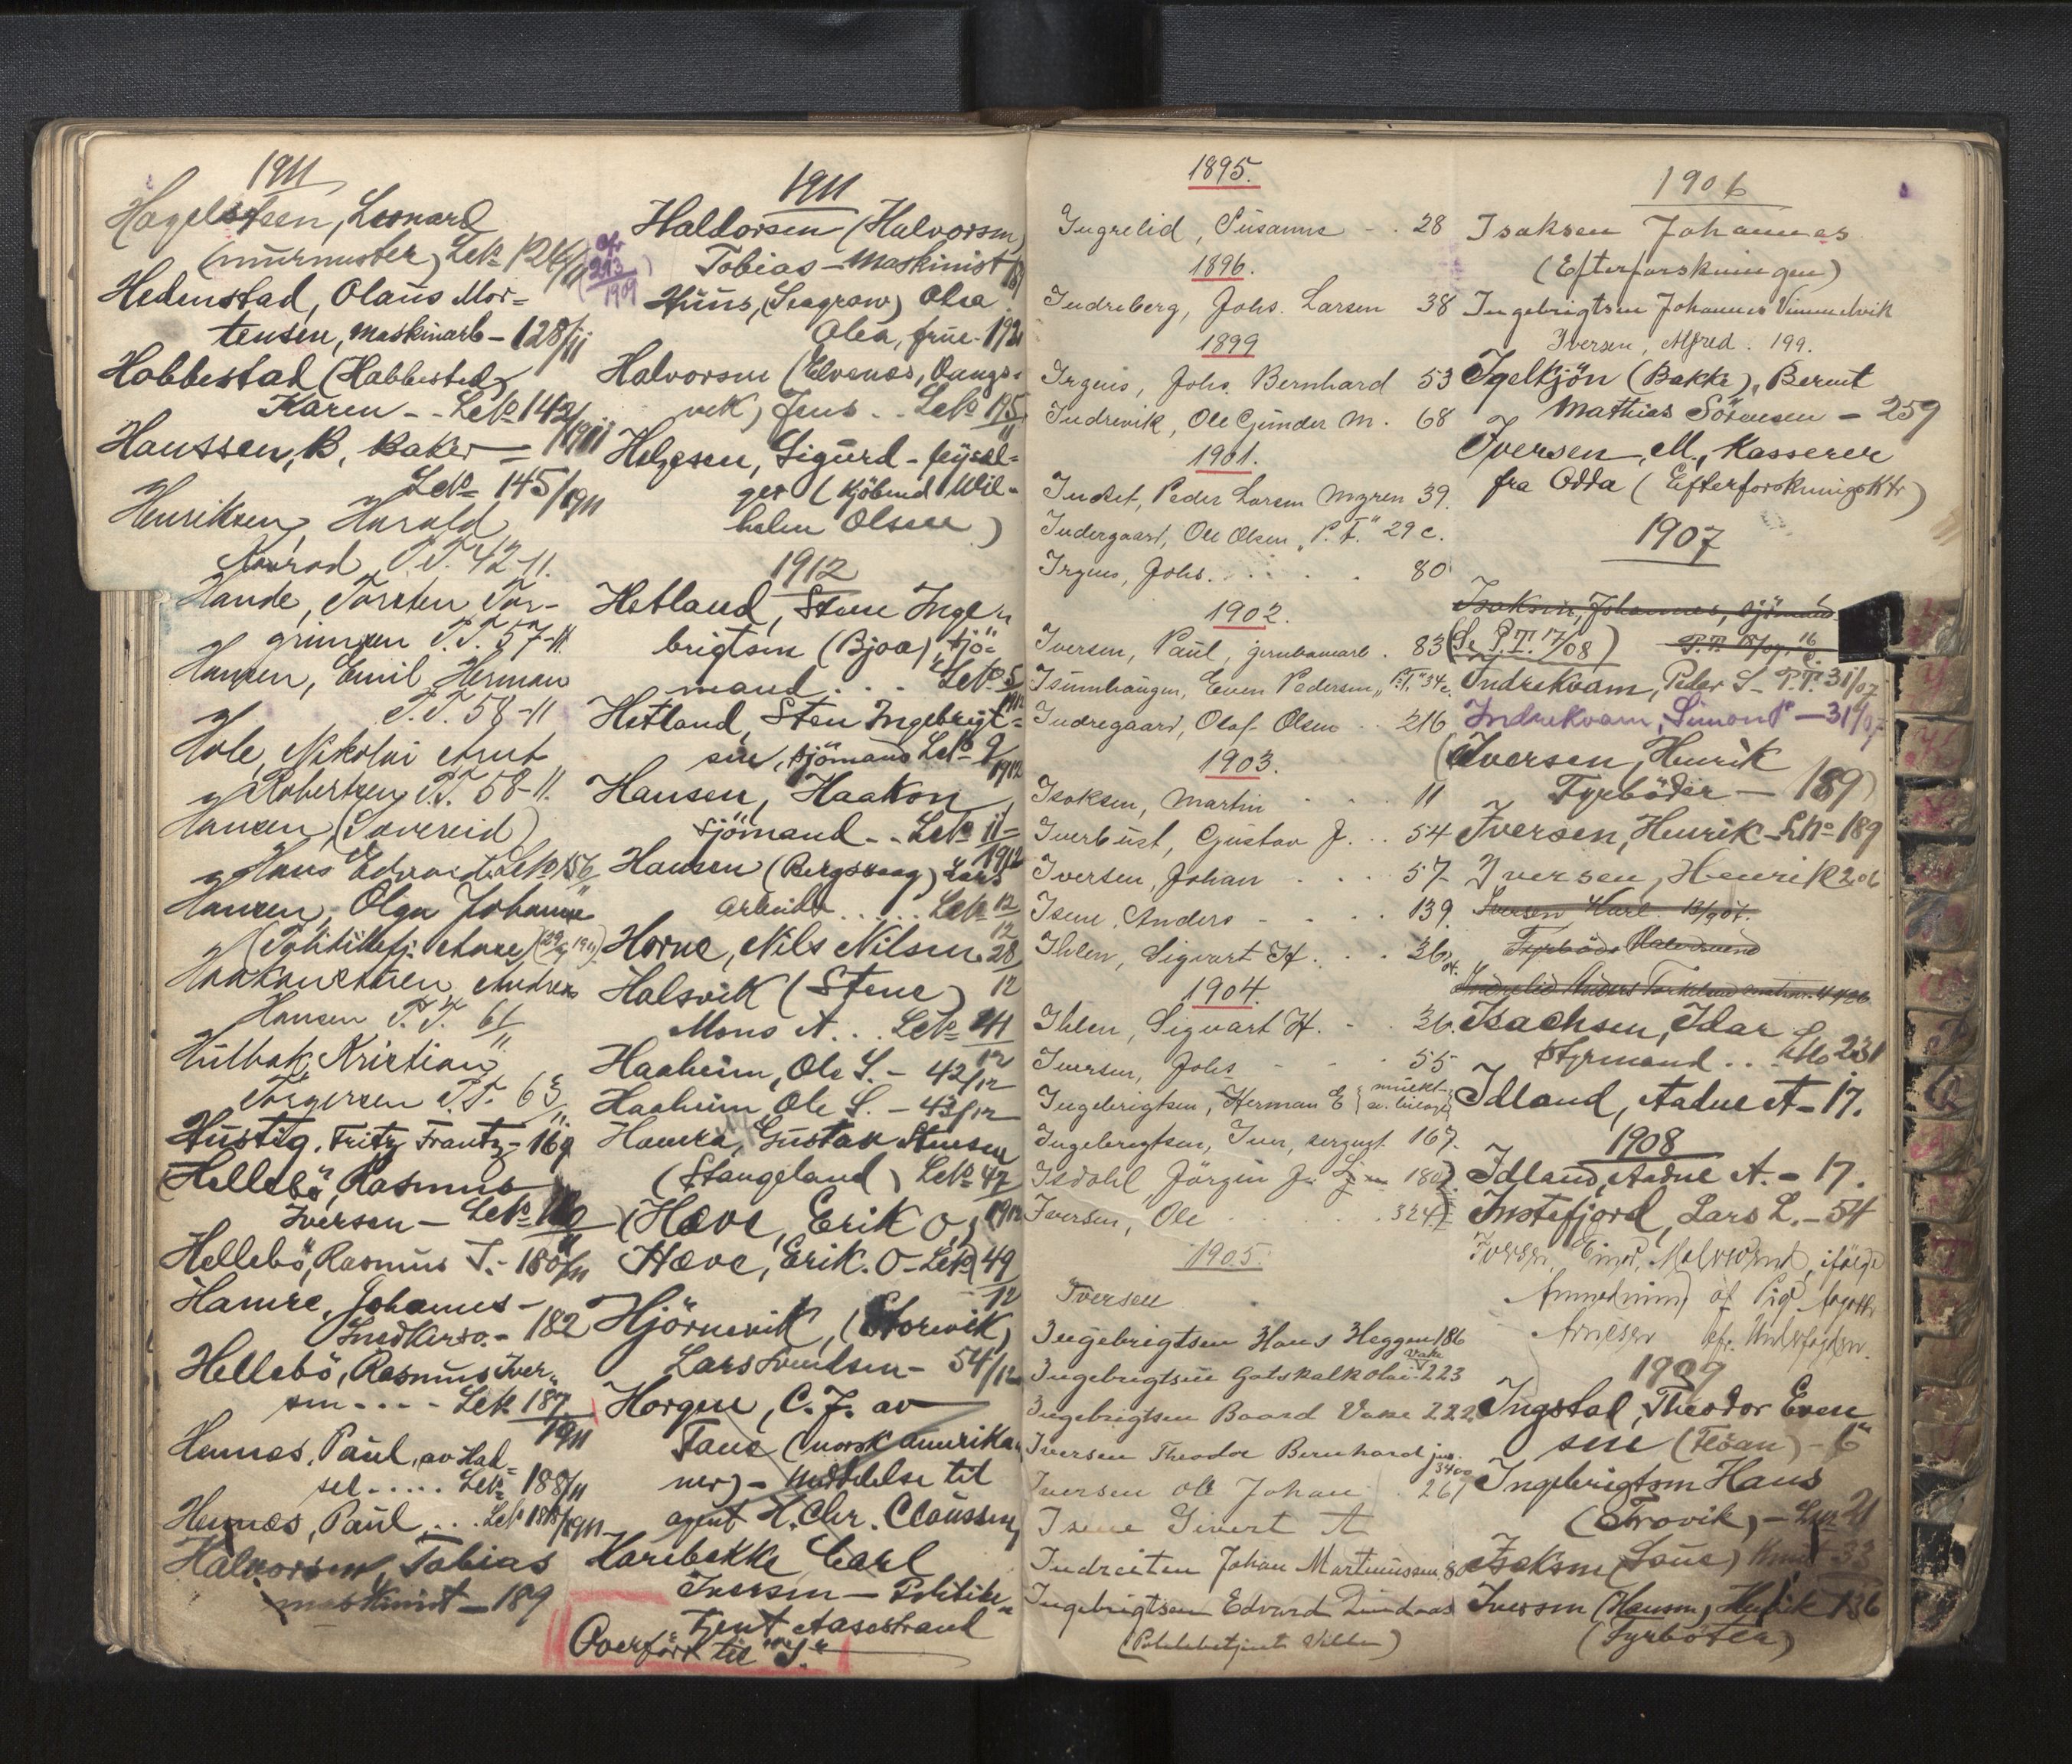 1911
Hagelsteen, Leonard
(murmester) LeNo 124/11
Hedenstad, Olaus Mor=
tensen, maskinarb - 128/11
Hobbestad (Habbestad)
Karen - - LeNo 142/1911
Hanssen, B, Baker =
LeNo 145/1911
Henriksen, Harald
Konrad P.T. 42-11.
Hande, Torsten Tor-
grimsen P.T. 57-11.
Hansen, Emil Herman
P.T. 58-11
Hole, Nikolai Arut
Robertsen, P.T. 58-11.
Hansen,
Hans Edvard LeNo 156
Hansen, Olga Johanne
Haakonsen Andreas
Hansen P.T. 61/11
Kristian
Torgersen P.T. 63/11
Hustig, Fritz Frantz - 169
Hellebö, Rasmus
Iversen - LeNo
Hellebö, Rasmus I. - 180/11
Hamre, Johannes -
Snedkersv. - 182
Hellebö, Rasmus Iver=
sen - - - - LeNo 187/1911
Hennes, Paul, av Had=
sel . . . . . LeNo 188/11
Hennes, Paul . . . LeNo 188/1911
Halvorsen, Tobias
maskinist - 189
1911
Haldorsen (Halvorsen)
cfr 213/1909
Tobias - Maskinist 189
Huus, (Seagrow) Olea
Olea, frue - 192
Halvorsen (Elvenes,
vik) Jens . . LeNo 195/11
Helgesen, Sigurd - feisel=
ger (Kjöbmd Wil=
helm Olsen)
1912
Hetland, Stene Inge
brigtsen (Bjoa), sjö=
mand . . . LeNo 5/1912
Hetland, Sten Ingebrigt=
sen, sjömand LeNo 9/1912
Hansen, Haakon,
sjömand - - LeNo 11=/1912
Hansen (Bergsvaag) Lars
arbeider . . . . . LeNo 12/12
Horne, Nils Nilsen 28/12
Halsvik (Stene)
Mons A . . LeNo 41/12
Haaheim, Ole S. - 42/12
Haaheim, Ole S. - 43/12
Hamra, Gustav Stensen
(Stangeland) LeNo 47/1912
(Hæve, Erik O,)
Hæve, Erik. O - LeNo 49/12
Hjörnevik, (Storevik)
Lars Svendsen - 54/12
Horgen, C. J. av
Tane (norsk amerika
ner) - meddelse til
agent H. Chr. Claussen
Harebakke Carl
Iversen - Politibe=
tjent Aasestrand
Overfört til "I."
1895.
Ingrelid, Susanne - . 28
1896.
Indreberg, Johs. Larsen 38
1899
Irgens, Johs. Bernhard 53
Indrevik, Ole Gunder M. 68
1901.
Indset, Peder Larsen Myren 39.
Indergaard, Ole Olsen "P. T." 29 c.
Irgens, Johs. . . . . 80
1902.
Iversen, Paul, jernbanearb. 83
Isumhaugen, Even Pedersen, "P.T." 34 c.
Indregaard, Olaf Olsen . . 216
1903.
Isaksen, Martin . . . 11
Iverbust, Gustav J. . . 54
Iversen, Johan . . . 57
Isene, Anders - - . . 139.
Ihlen, Sigvart H . . . 36/04.
1904.
Ihlen, Sigvart H. - . 36.
Iversen, Johs - - . 55
Ingebrigtsen, Herman E
Ingebrigtsen, Iver, sergeant 167.
Isdahl, Jörgen J. 180
Iversen, Ole . . . . . 324
1905.
Iversen
Ingebrigtsen Hans Heggen 186
Ingebrigtsen Gotskalk Olai Vake 223
Ingebrigtsen Baard Vake 222
Iversen Theodor Bernhard jus. 340
Iversen Ole Johan . 267
Isene Sivert A
Indreiten Johan Martinussen 80
Ingebrigtsen Edvard Lindaas
(Politibetjent Villen)
1906
Isaksen Johannes
(Efterforskningen)
Ingebrigtsen Johannes Vimmelvik
Iversen, Alfred. 199.
Igeltjön (Bakke), Bernt
Mathias Sörensen - 259
Iversen, M., Kasserer
fra Odda (Efterforskningsktr)
1907
Isaksen, Johannes, sjömand
(Se P.T. 17/08) P.T. 18/07. 16 c.
Indrekvam, Peder S - P.T. 31/07
Indrekvam, Simon P - 31/07
(Iversen, Henrik
Fyrböder - 189)
Iversen, Henrik - LNo 189
Iversen, Henrik 206
Iversen Karl. 13/907.
Fyrböder Halvorsend
Indrelid Anders Torkelsen
Isachsen, Idar
Styrmand . . . LNo 231
Idland, Aadne A - 17.
1908
Idland, Aadne A. - 17.
Instefjord, Lars L. - 54
Iversen, Einar, Malersvend, ifölge
Anmodning af Pige
Arnesen cfr.
1909
Ingstad, Theodor Even
sen (Höan) - 6
Ingebrigtsen Hans
(Trovik) - LNo 21
Isaksen (Saue) Knut - 33
Iversen (Hansen) Henrik 136
(Fyrböter)